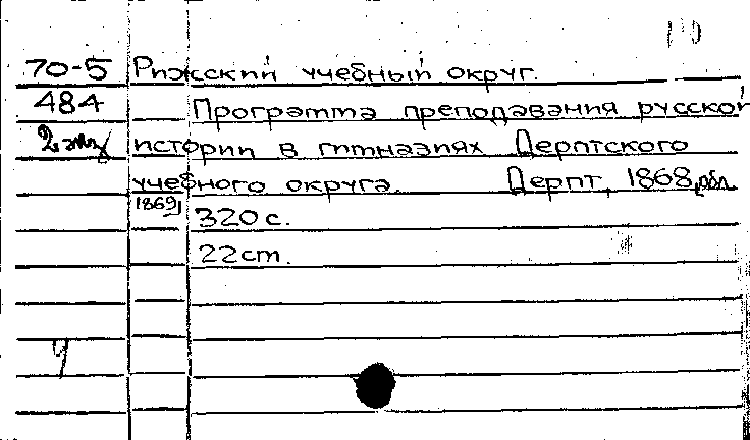 70-5 Рижский учебный округ.
484 Программа преподавания русской
2 экз истории в гимназиях Дерптского
учебного округа. Дерпт, 1868, обл.
1869] 320 с.
22 ст.